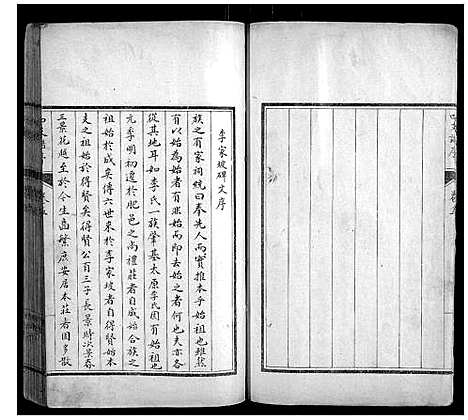 李家坡碑文序
族之有家祠統曰奉先人而實推本乎始祖也雖然
有以始為始者有非始而即去始之者何也夫亦各
從其地耳如李氏一族肇基太原李氏固有始祖
元季明初遷於肥邑之尚禮莊者自咸始合族之
祖始於成矣傳六世來於李家坡者自得賢始來
支之祖始於得賢矣得賢公有三子長景時次景春
三景花越至於今生齒繁庶安居本莊者固多散